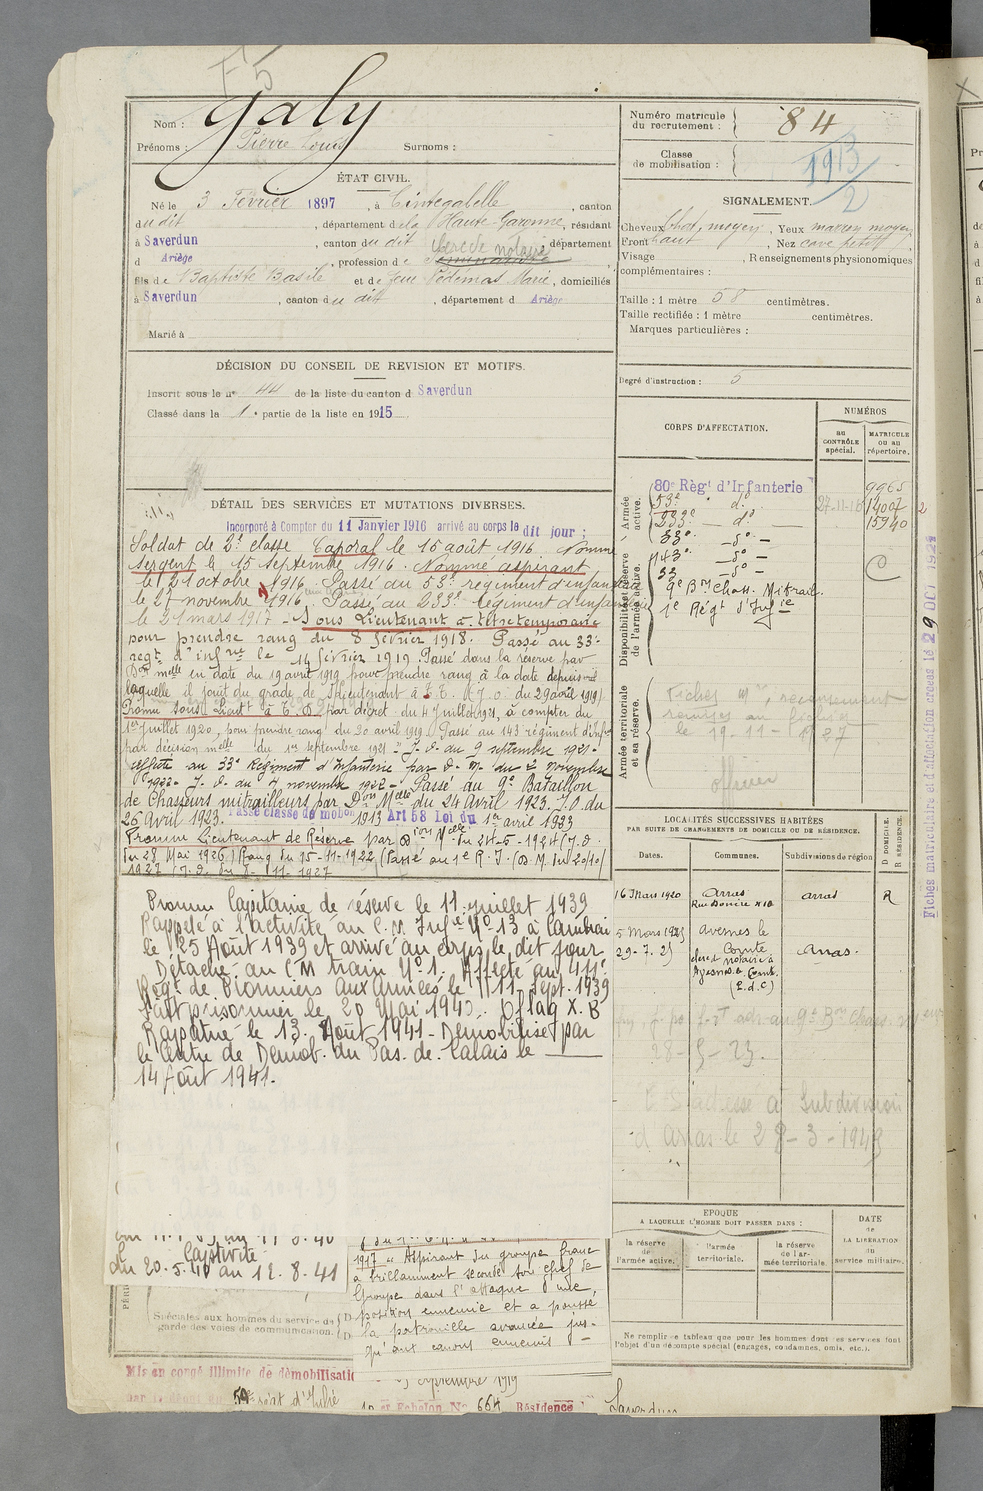 F5
Nom : Galy
Prénoms : Pierre Louis Surnoms :
Numéro matricule du recrutement : 84
Classe de mobilisation : 1913/2
ÉTAT CIVIL.
Né le 3 Février 1897, à Cintegabelle, canton
dudit, département de la Haute-Garonne, résidant
à Saverdun, canton dudit, département
d Ariège, profession de clerc de notaire
fils de Baptiste Basile et de feue Pédemas Marie, domiciliés
à Saverdun, canton dudit, département d Ariège
Marié à
SIGNALEMENT.
Cheveux chat. moyen, Yeux marron moyen
Front haut, Nez cave petit
Visage, Renseignements physionomiques
complémentaires :
Taille : 1 mètre 58 centimètres.
Taille rectifiée : 1 mètre centimètres.
Marques particulières :
DÉCISION DU CONSEIL DE REVISION ET MOTIFS.
Inscrit sous le nº 44 de la liste du canton d Saverdun
Classé dans la 1e partie de la liste en 1915
Degré d'instruction : 3
CORPS D'AFFECTATION.
NUMÉROS
au CONTRÔLE spécial.
MATRICULE ou au répertoire.
Armée active.
80e Régt d'Infanterie 9965
53e do 27-11-16 14007
233e — do — 15940
33e — do —
Disponibilité et réserve de l'armée active.
143e — do —
32 — do —
9e Bon Chass. Mitrail.
1e Régt d'Infie
Armée territoriale et sa réserve.
Fiches Mle, recensement
remises au
le 19-11-1927
officier
DÉTAIL DES SERVICES ET MUTATIONS DIVERSES.
Incorporé à Compter du 11 Janvier 1916 arrivé au corps le dit jour ;
Soldat de 2e classe Caporal le 15 août 1916. Nommé
Sergent le 15 Septembre 1916. Nommé aspirant
le 21 octobre 1916. Passé au 53e régiment d'infanterie
le 27 novembre 1916. Passé au 233e régiment d'infanterie
le 21 mars 1917 - Sous Lieutenant à titre temporaire
pour prendre rang du 8 février 1918. Passé au 33e
regt d'infrie le 14 février 1919. Passé dans la réserve par
Don melle en date du 19 avril 1919 pour prendre rang à la date depuis
laquelle il jouit du grade de S/lieutenant à T. T. (J. O. du 29 avril 1919)
Promu Sous Lieutt à T. D. par décret du 4 Juillet 1921, à compter du
1er Juillet 1920, pour prendre rang du 20 avril 1919. Passé au 143 régiment d'infie
par décision melle du 1er septembre 1921 - J. O. du 9 septembre 1921 -
affecté au 33e Régiment d'Infanterie par D. M. du 2 novembre
1922 - J. O. du 7 novembre 1922 - Passé au 9e Bataillon
de Chasseurs mitrailleurs par Don Melle du 24 Avril 1923. J. O. du
26 Avril 1923. Passé classe de mobon 1913 Art 58 Loi du 1er avril 1923
Promu Lieutenant de Réserve par Dion Melle du 24-5-1924 (J. O.
du 28 Mai 1926) (Rang du 15-11-1922) (Passé au 1e R. I. (D. M. du 20/10/
1927 (J. O. du 8-11-1927
Promu Capitaine de réserve le 11 juillet 1939
Rappelé à l'activité au C. M Infie No 13 à Cambrai
le 25 Août 1939 et arrivé au corps le dit jour
Détaché au CM train No 1. Affecté au 411e
Régt de Pionniers aux Armées le 11 Sept. 1939
Fait prisonnier le 20 Mai 1940. Oflag X. B
Rapatrié le 13 Août 1941 - Démobilisé par
le Centre de Démob. du Pas. de. Calais le
14 Août 1941.
LOCALITÉS SUCCESSIVES HABITÉES
PAR SUITE DE CHANGEMENTS DE DOMICILE OU DE RÉSIDENCE.
Dates. Communes. Subdivisions de région. D DOMICILE. R RÉSIDENCE.
16 Mars 1920 Arras arras R
5 Mars 1925 avesnes le
29-7-25 Comte Arras.
clerc de notaire à
Avesnes le Comte
(P. d. C)
28-5-23.
adressé à Subdivision
d'arras le 28-3-1945
ÉPOQUE
A LAQUELLE L'HOMME DOIT PASSER DANS :
la réserve de l'armée active.
l'armée territoriale.
la réserve de l'armée territoriale.
DATE de LA LIBÉRATION du service militaire.
Captivité
du 20.5.40 au 12.8.41
1917 "Aspirant du groupe franc
a brillamment secondé son chef de
Groupe dans l'attaque d'une
position ennemie et a poussé
la patrouille avancée jus-
qu'aux canons ennemis -
Spéciales aux hommes du service de
garde des voies de communication.
Ne remplir ce tableau que pour les hommes dont les services font
l'objet d'un décompte spécial (engagés, condamnés, omis, etc.).
Mis en congé illimité de démobilisation
septembre 1919
par le dépôt du 59e régt d'Infie
Echelon No 664 Résidence Saverdun
Fiches matriculaire et d'affectation créées le 29 OCT 192